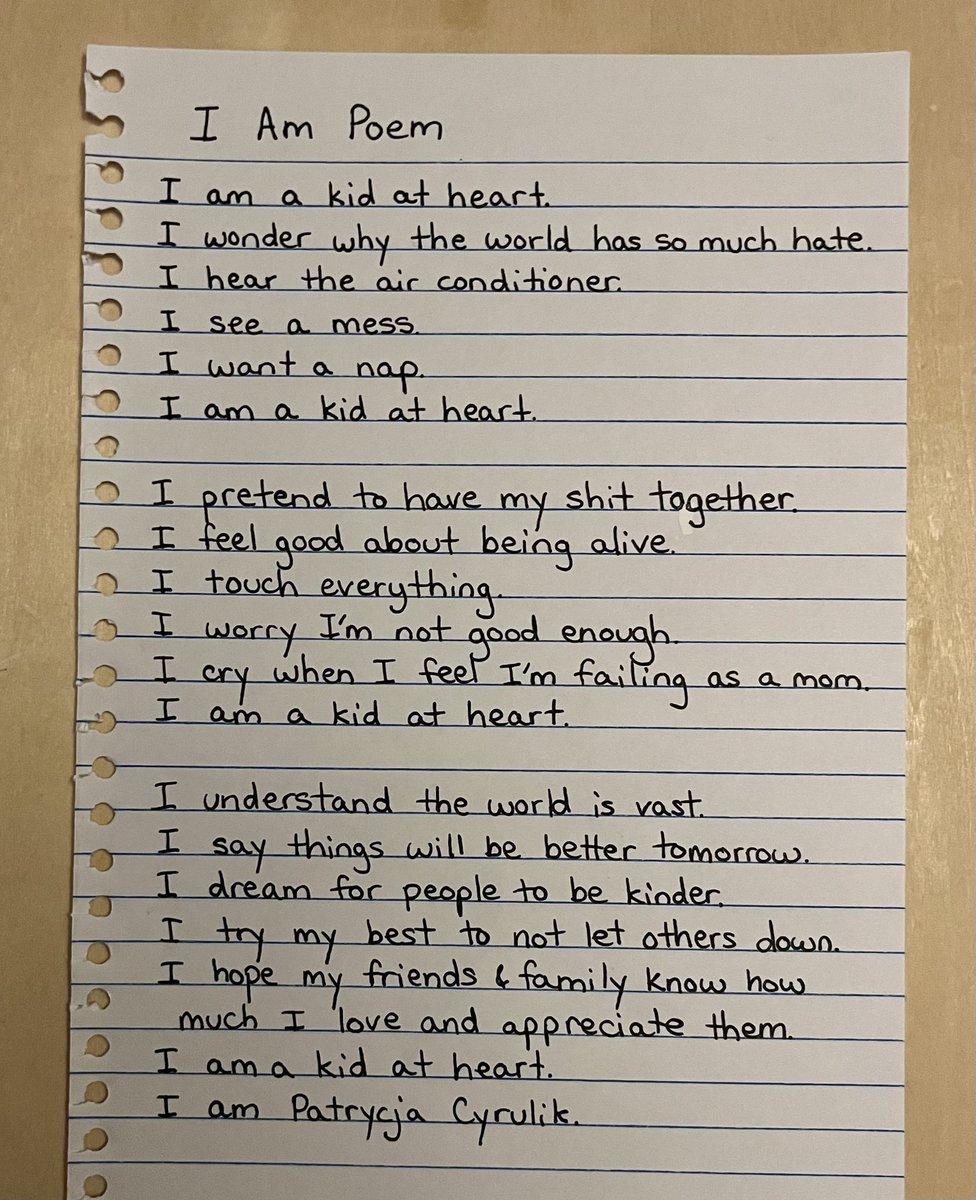 I Am Poem
I am a kid at heart.
I wonder why the world has so much hate.
I hear the air conditioner.
I see a mess.
I want a nap.
I am a kid at heart.
I pretend to have my shit together.
I feel good about being alive.
I touch everything.
I worry I'm not good enough.
I cry when I feel I'm failing as a mom.
I am a kid at heart.
I understand the world is vast.
I say things will be better tomorrow.
I dream for people to be kinder.
I try my best to not let others down.
I hope my friends & family know how
much I love and appreciate them.
I am a kid at heart.
I am Patrycja Cyrulik.